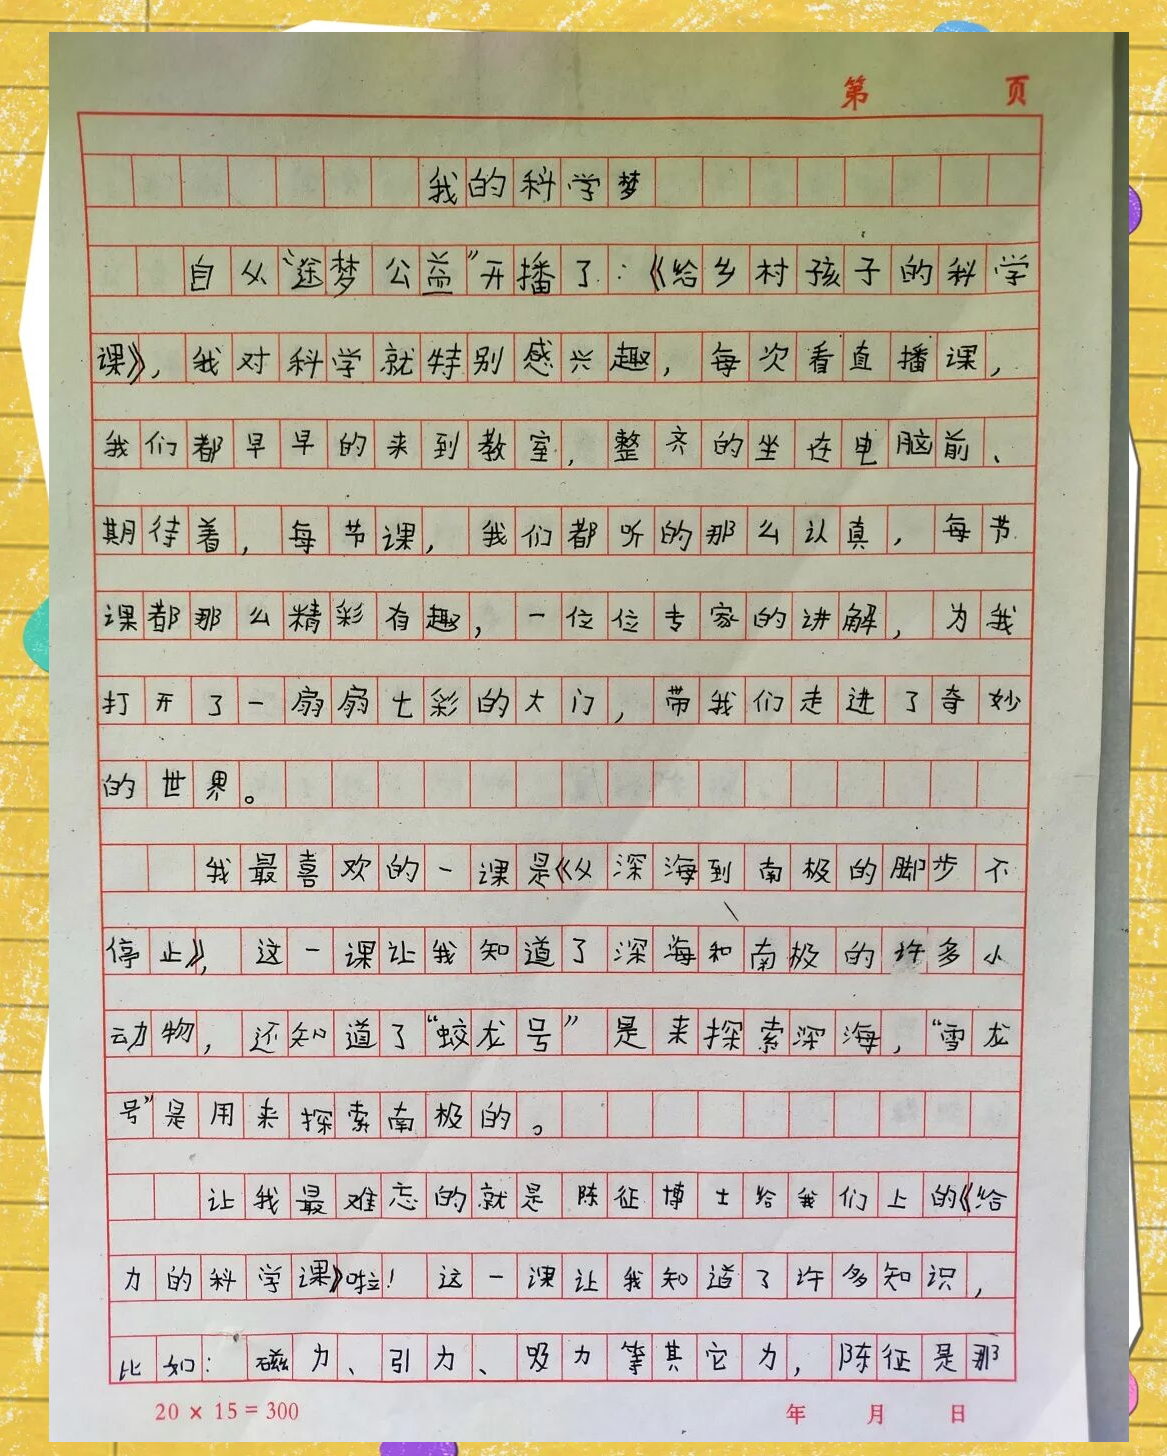 第 页
我的科学梦
自从“逐梦公益”开播了：《给乡村孩子的科学
课》，我对科学就特别感兴趣，每次看直播课，
我们都早早的来到教室，整齐的坐在电脑前、
期待着，每节课，我们都听的那么认真，每节
课都那么精彩有趣，一位位专家的讲解，为我
打开了一扇扇七彩的大门，带我们走进了奇妙
的世界。
我最喜欢的一课是《从深海到南极的脚步不
停止》，这一课让我知道了深海和南极的许多小
动物，还知道了“蛟龙号”是来探索深海，“雪龙
号”是用来探索南极的。
让我最难忘的就是陈征博士给我们上的《给
力的科学课》啦！这一课让我知道了许多知识，
比如：磁力、引力、吸力等其它力，陈征是那
20 × 15 = 300
年 月 日